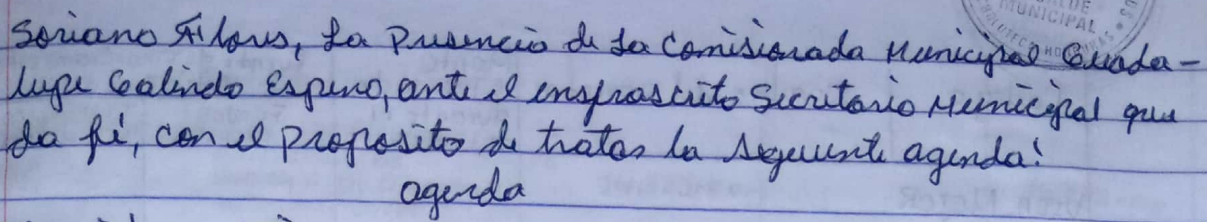 Soriano Flores, La Presencia de La Comisionada Municipal Guada-
lupe Galindo Espino, ante el insfrascrito Secretario Municipal que
da fé, con el proposito de tratar la siguiente agenda:
agenda
MUNICIPAL